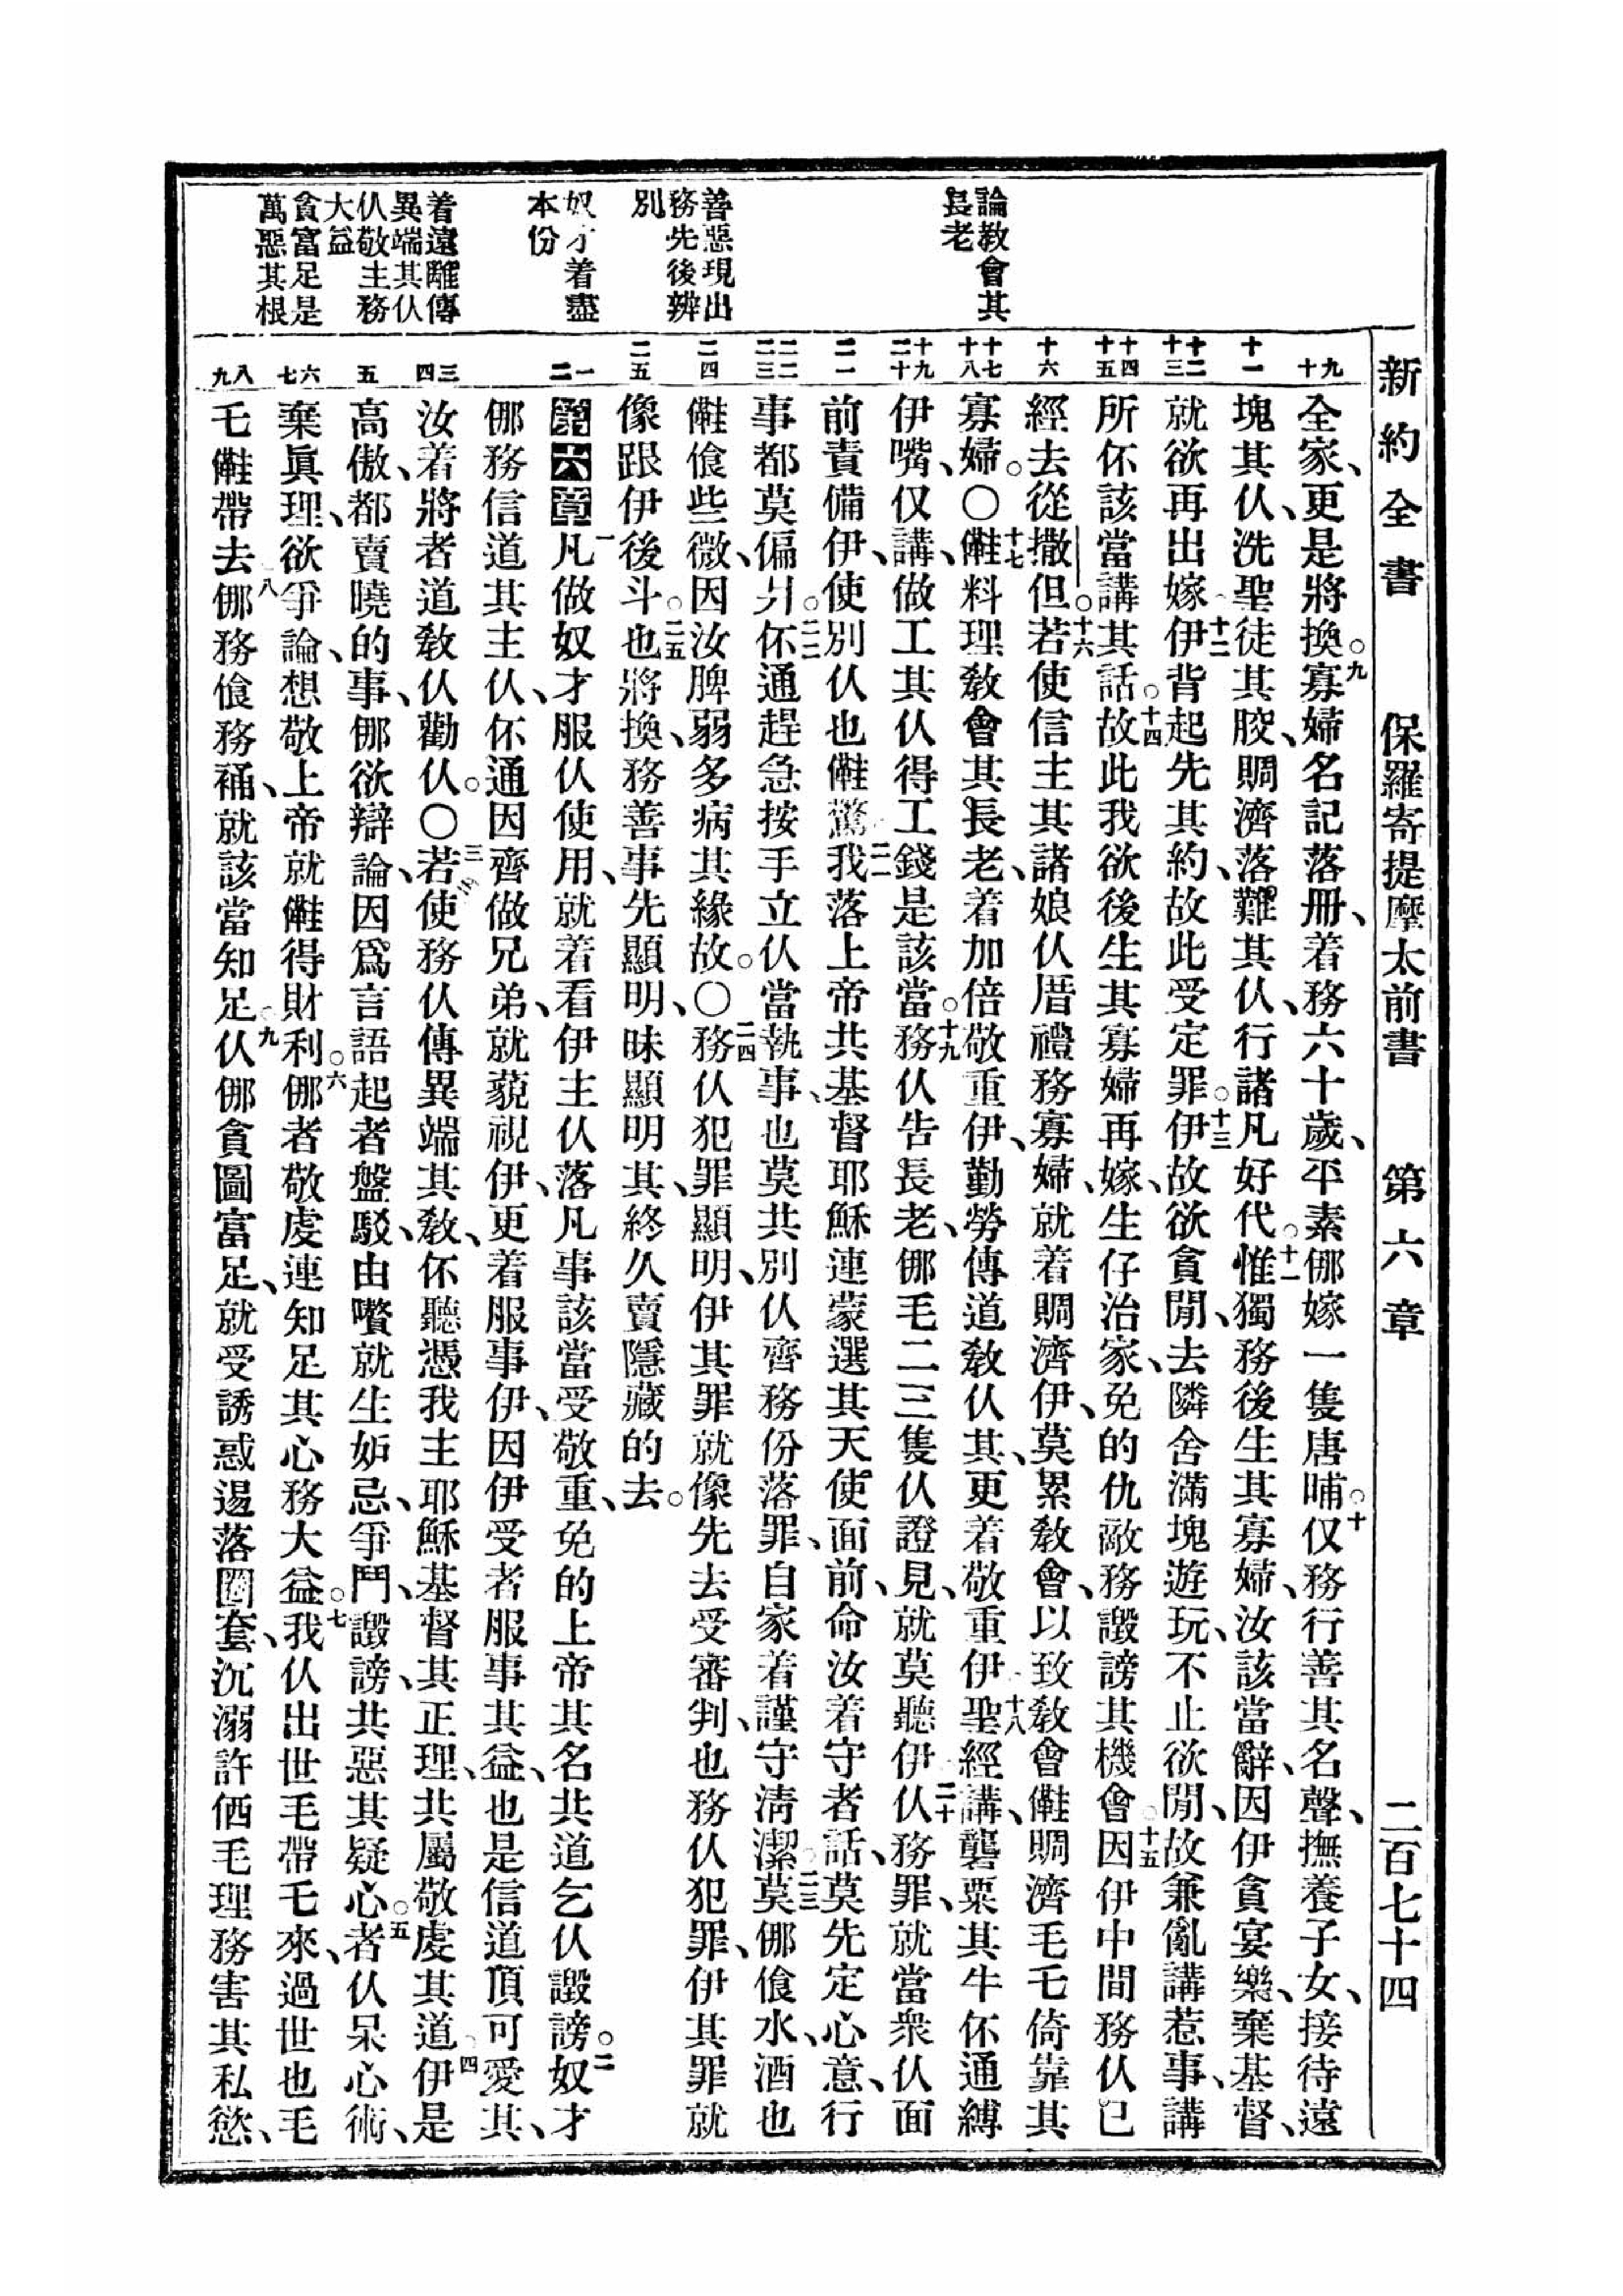 新約全書 保羅寄提摩太前書 第六章 二百七十四
論教會其
長老
善惡現出
務先後辨
別
奴才着盡
本份
着遠離傳
異端其仈
仈敬主務
大益
貪富足是
萬惡其根
九 十
十一
十二 十三
十四 十五
十六
十七 十八
十九 二十
二一
二二 二三
二四
二五
一 二
三 四
五
六 七
八 九
全家、更是將換。九寡婦名記落冊、着務六十歲、平素𠆧嫁一隻唐晡。十仅務行善其名聲、撫養子女、接待遠
塊其仈、洗聖徒其骹、賙濟落難其仈、行諸凡好代。十一惟獨務後生其寡婦、汝該當辭、因伊貪宴樂、棄基督、
就欲再出嫁。十二伊背起先其約、故此受定罪。十三伊故欲貪閒、去隣舍滿塊遊玩、不止欲閒、故兼亂講惹事、講
所伓該當講其話。十四故此我欲後生其寡婦再嫁、生仔治家、免的仇敵務譭謗其機會。十五因伊中間務仈已
經去從撒但。十六若使信主其諸娘仈厝禮務寡婦、就着賙濟伊、莫累教會、以致教會𣍐賙濟毛乇倚靠其
寡婦。〇十七𣍐料理教會其長老、着加倍敬重伊、勤勞傳道教仈其、更着敬重伊。十八聖經講、礱粟其牛伓通縛
伊嘴、仅講、做工其仈得工錢是該當。十九務仈告長老、𠆧毛二三隻仈證見、就莫聽伊。二十仈務罪、就當衆仈面
前責備伊、使別仈也𣍐驚。二一我落上帝共基督耶穌連蒙選其天使面前、命汝着守者話、莫先定心意、行
事都莫偏爿。二二伓通趕急按手立仈當執事、也莫共別仈齊務份落罪、自家着謹守淸潔。二三莫𠆧飡水、酒也
𣍐飡些微、因汝脾弱多病其緣故。〇二四務仈犯罪顯明、伊其罪就像先去受審判、也務仈犯罪、伊其罪就
像跟伊後斗。二五也將換、務善事先顯明、昧顯明其、終久賣隱藏的去。
第六章一凡做奴才服仈使用、就着看伊主仈落凡事該當受敬重、免的上帝其名共道乞仈譭謗。二奴才
𠆧務信道其主仈、伓通因齊做兄弟、就藐視伊、更着服事伊、因伊受者服事其益、也是信道頂可愛其、
汝着將者道教仈勸仈。〇三若使務仈傳異端其教、伓聽憑我主耶穌基督其正理、共屬敬虔其道、四伊是
高傲、都賣曉的事、𠆧欲辯論、因爲言語起者盤駁、由嚽就生妒忌、爭鬥、譭謗、共惡其疑心。五者仈呆心術、
棄眞理、欲爭論、想敬上帝就𣍐得財利。六𠆧者敬虔連知足其心務大益。七我仈出世毛帶乇來、過世也毛
乇𣍐帶去。八𠆧務飡務𧛾、就該當知足。九仈𠆧貪圖富足、就受誘惑遏落圈套、沉溺許価毛理務害其私慾、